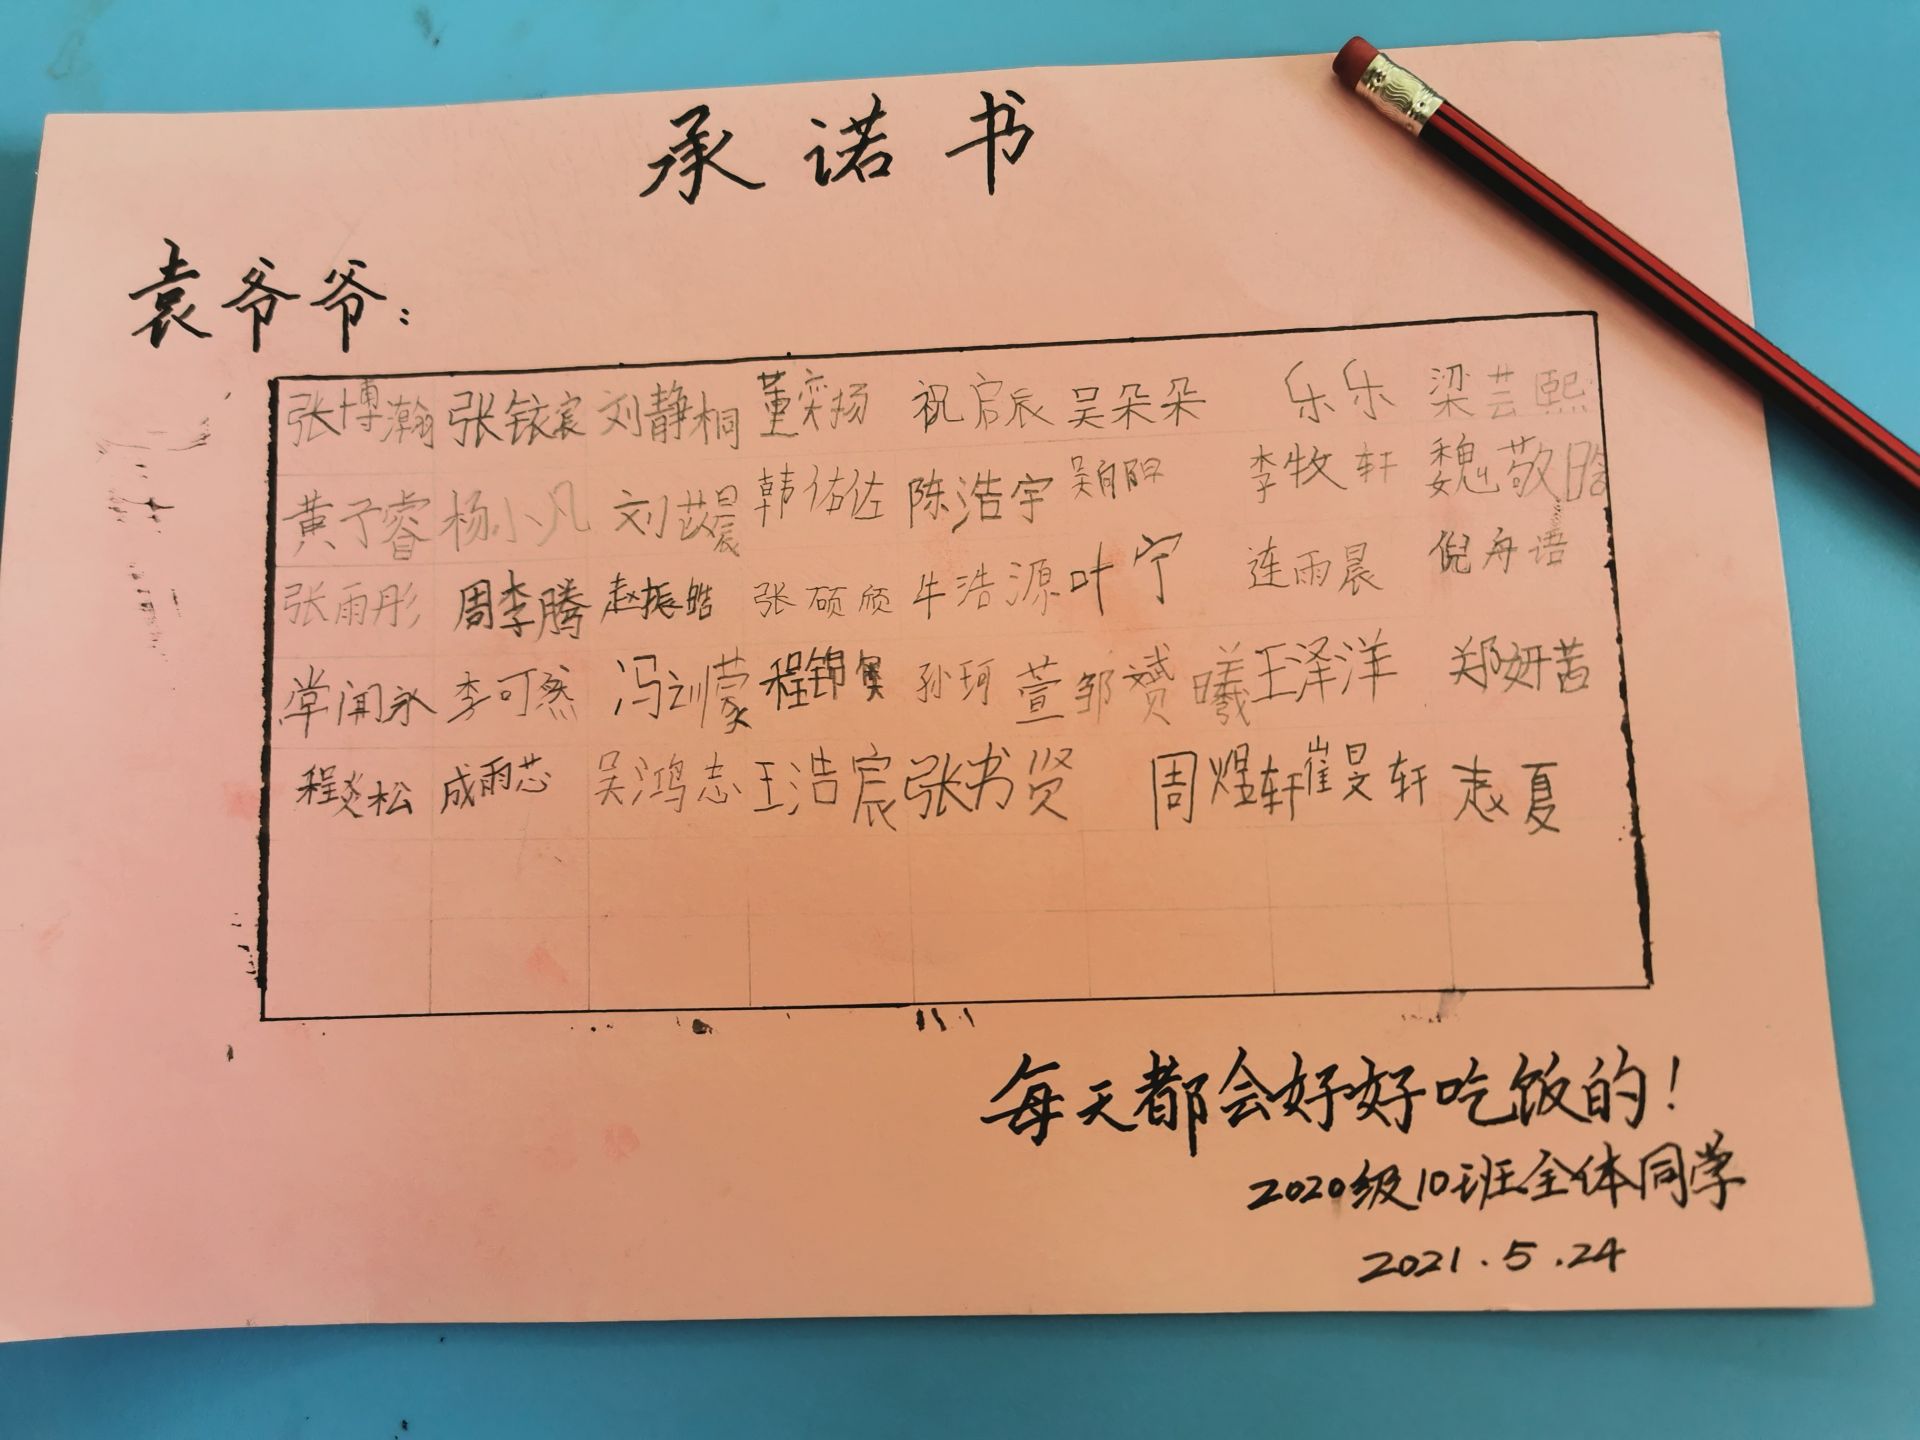 承诺书
袁爷爷：
张博瀚 张铱宸 刘静桐 董奕扬 祝启辰 吴朵朵 乐乐 梁芸熙
黄予睿 杨小凡 刘苡晨 韩佑佐 陈浩宇 李牧轩 魏敬晗
张雨彤 周李腾 赵振皓 张硕颀 牛浩源 叶宁 连雨晨 倪舟语
常闻永 李可然 冯训蒙 程锦 孙珂萱 邹赟曦 王泽洋 郑妍茜
程炎松 成雨芯 吴鸿志 王浩宸 张书贤 周煜轩 崔旻轩 夏
每天都会好好吃饭的！
2020级10班全体同学
2021.5.24